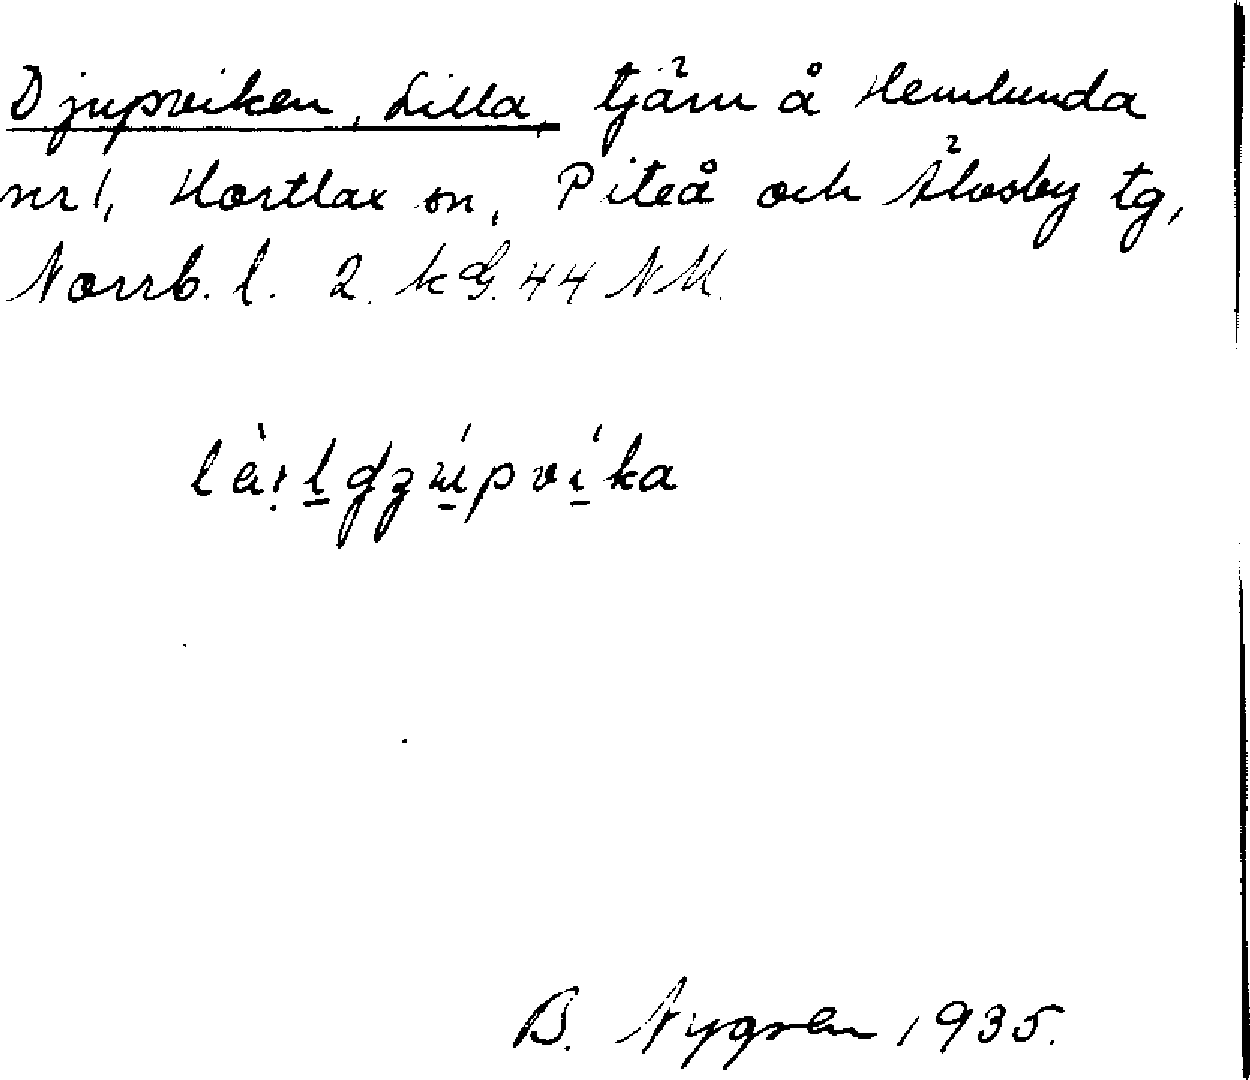 Djupviken, Lilla, tjärn å Hemlunda
nr 1, Hortlax sn, Piteå och Älvsby tg,
Norrb. l. 2. kG. 44 NM.
B. Nygren 1935.